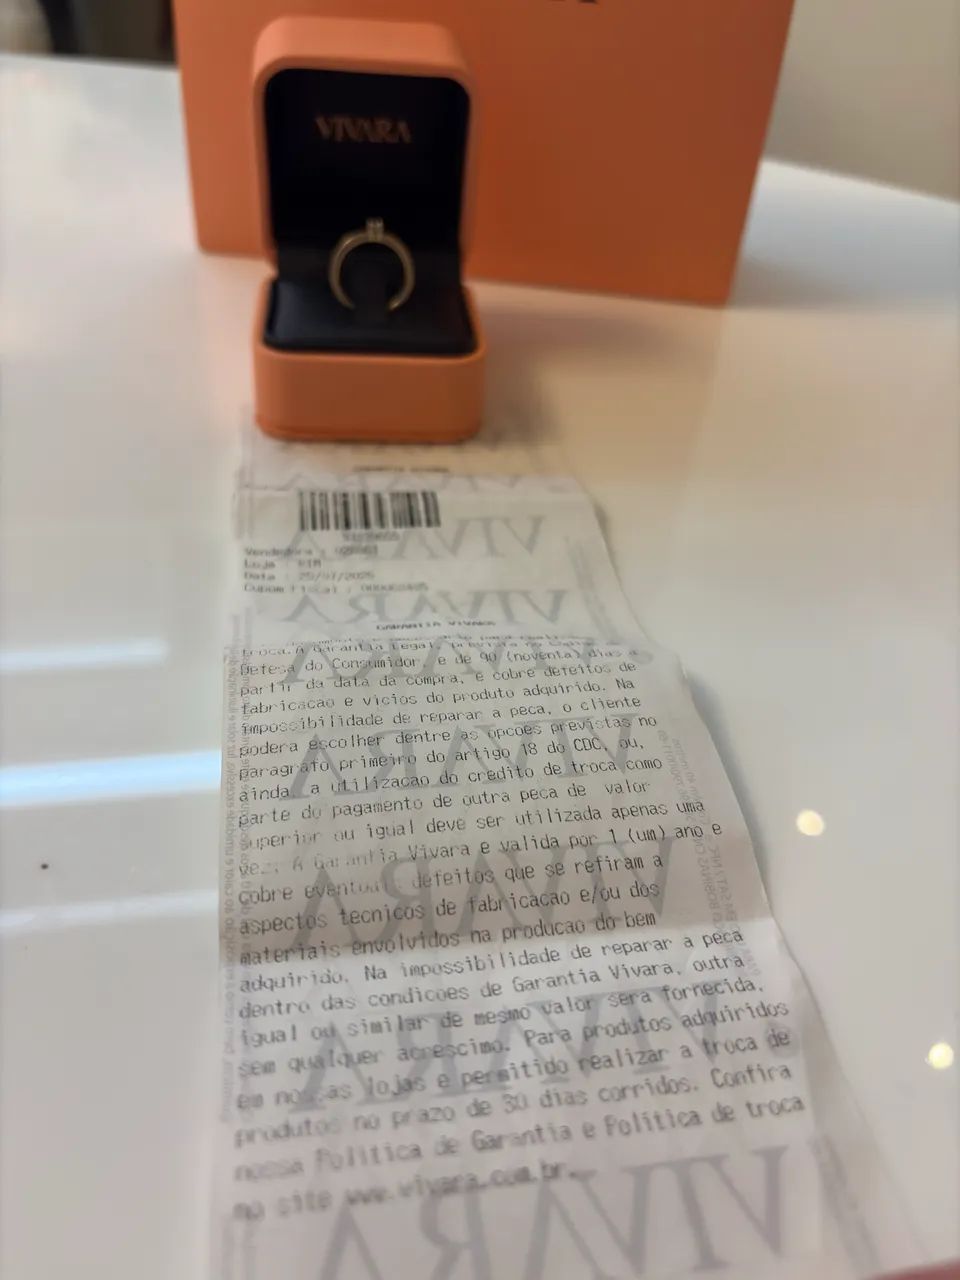 VIVARA
Vendedora :
Loja :
Data : 25/07/2025
Cupom Fiscal :
GARANTIA VIVARA
troca. A Garantia Legal, prevista no
Defesa do Consumidor, e de 90 (noventa) dias a
partir da data da compra, e cobre defeitos de
fabricacao e vicios do produto adquirido. Na
impossibilidade de reparar a peca, o cliente
podera escolher dentre as opcoes previstas no
paragrafo primeiro do artigo 18 do CDC, ou,
ainda, a utilizacao do credito de troca como
parte do pagamento de outra peca de valor
superior ou igual deve ser utilizada apenas uma
vez. A Garantia Vivara e valida por 1 (um) ano e
cobre eventuais defeitos que se refiram a
aspectos tecnicos de fabricacao e/ou dos
materiais envolvidos na producao do bem
adquirido. Na impossibilidade de reparar a peca
dentro das condicoes de Garantia Vivara, outra
igual ou similar de mesmo valor sera fornecida,
sem qualquer acrescimo. Para produtos adquiridos
em nossas lojas e permitido realizar a troca de
produtos no prazo de 30 dias corridos. Confira
nossa Politica de Garantia e Politica de troca
no site www.vivara.com.br.